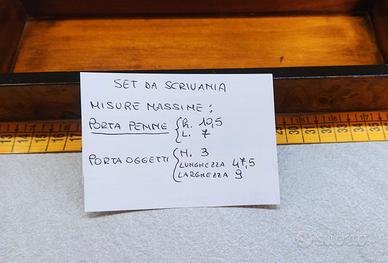 SET DA SCRIVANIA
MISURE MASSIME:
PORTA PENNE { h. 10,5
L. 7
PORTA OGGETTI { H. 3
LUNGHEZZA 47,5
LARGHEZZA 9
subito